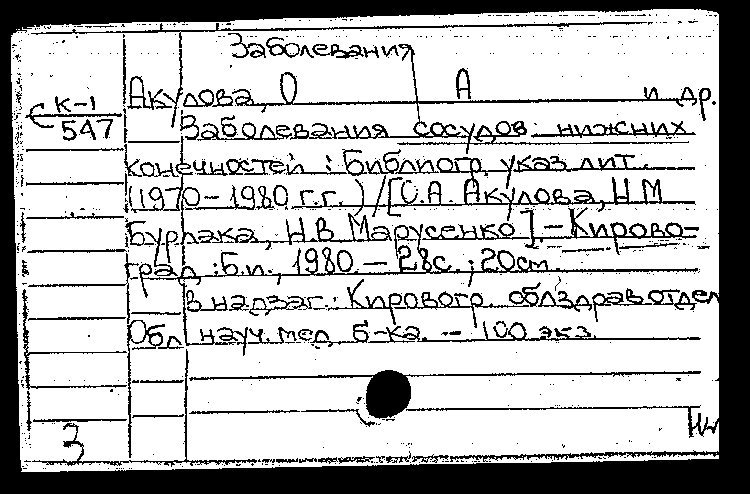 Заболевания
К-1
547
Акулова, О А и др.
Заболевания сосудов нижних
конечностей : Библиогр. указ. лит.
(1970-1980 г.г.) / [О.А. Акулова, Н.М
Бурлака, Н.В Марусенко]. - Кирово-
град : Б.и., 1980. - 28с. ; 20см.
В надзаг.: Кировогр. облздравотдел
Обл науч. мед. б-ка. - 100 экз.
3